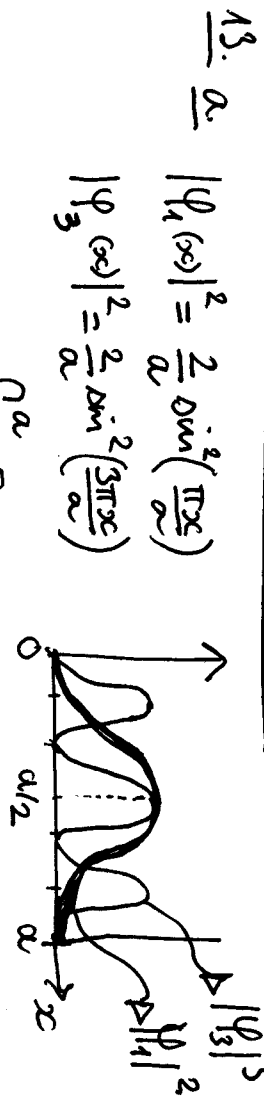 13. a. |φ₁(x)|² = 2/a sin²(πx/a)
|φ₃(x)|² = 2/a sin²(3πx/a)
a
0 a/2 a x
|φ₃|²
|φ₁|²